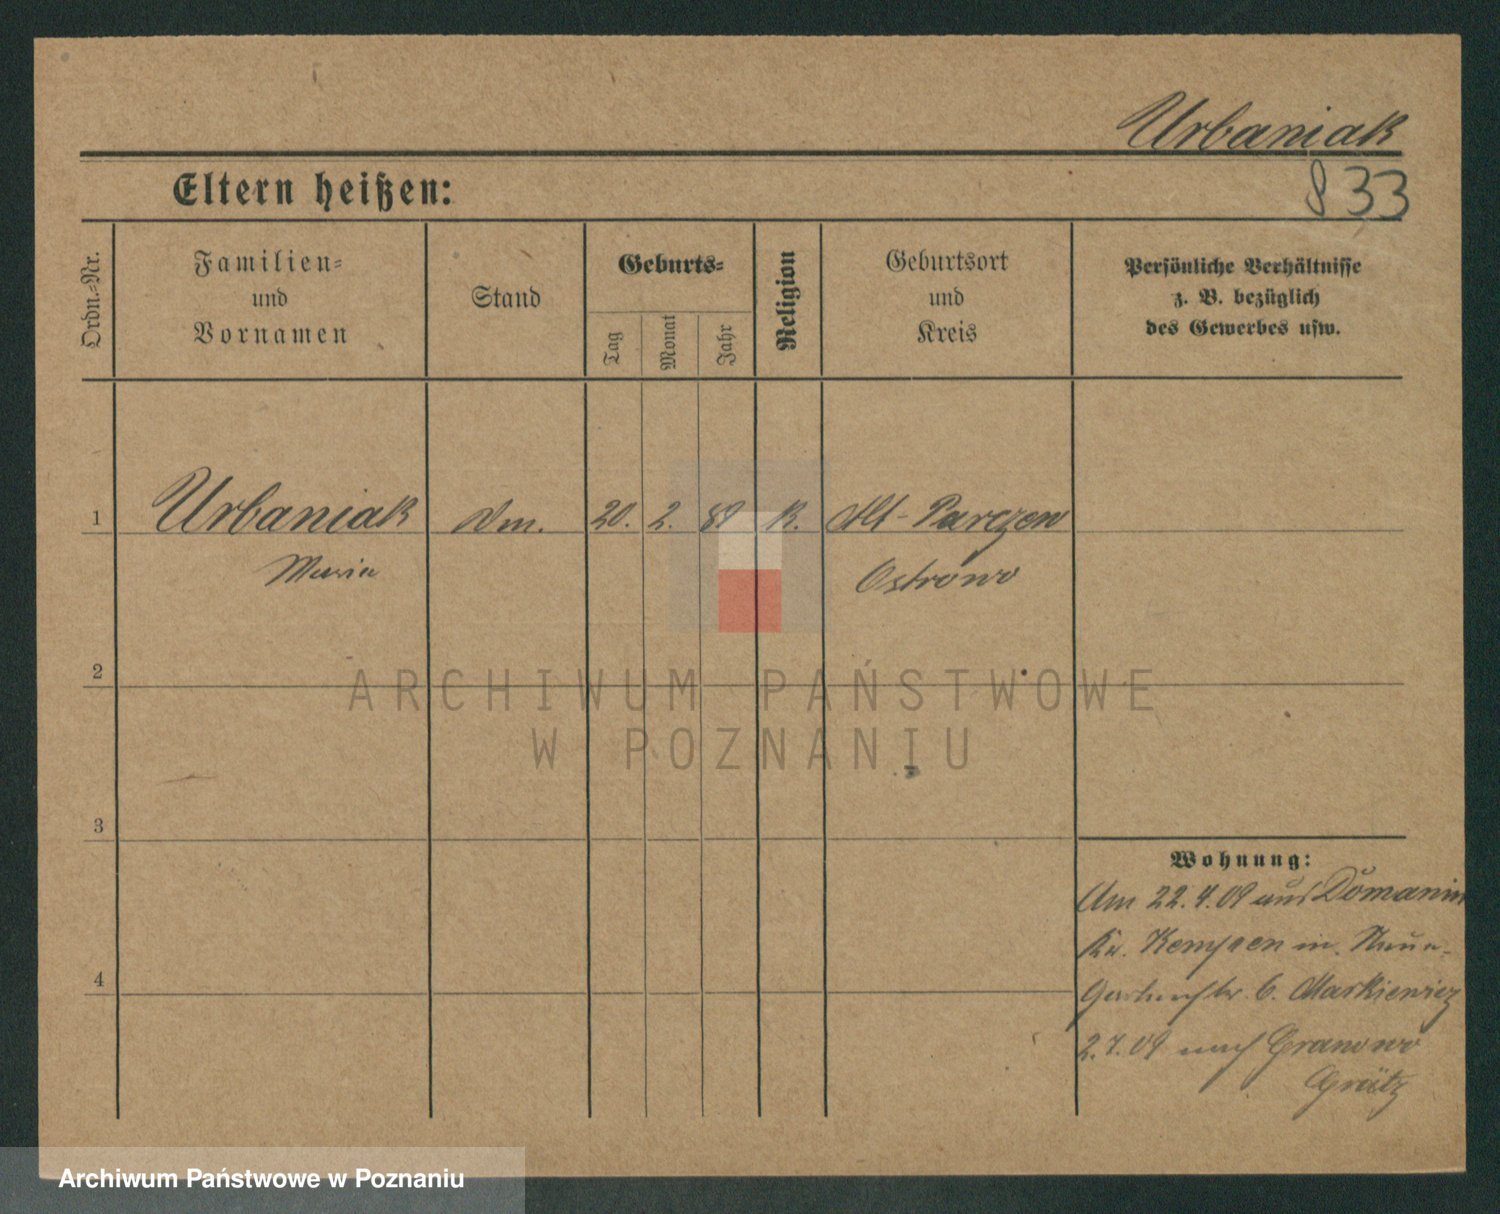 Urbaniak
833
Eltern heißen:
Ordn.-Nr.
Familien-
und
Vornamen
Stand
Geburts-
Tag
Monat
Jahr
Religion
Geburtsort
und
Kreis
Persönliche Verhältnisse
z. B. bezüglich
des Gewerbes usw.
1 Urbaniak 20. 2. 89 K. Alt-Parczew
Maria Ostrowo
2
ARCHIWUM PAŃSTWOWE
W POZNANIU
3
Wohnung:
Am 22.4.09 aus Domanin
Kr. Kempen in
6. Markiewicz
09 nach Granowo
4
Grätz
Archiwum Państwowe w Poznaniu